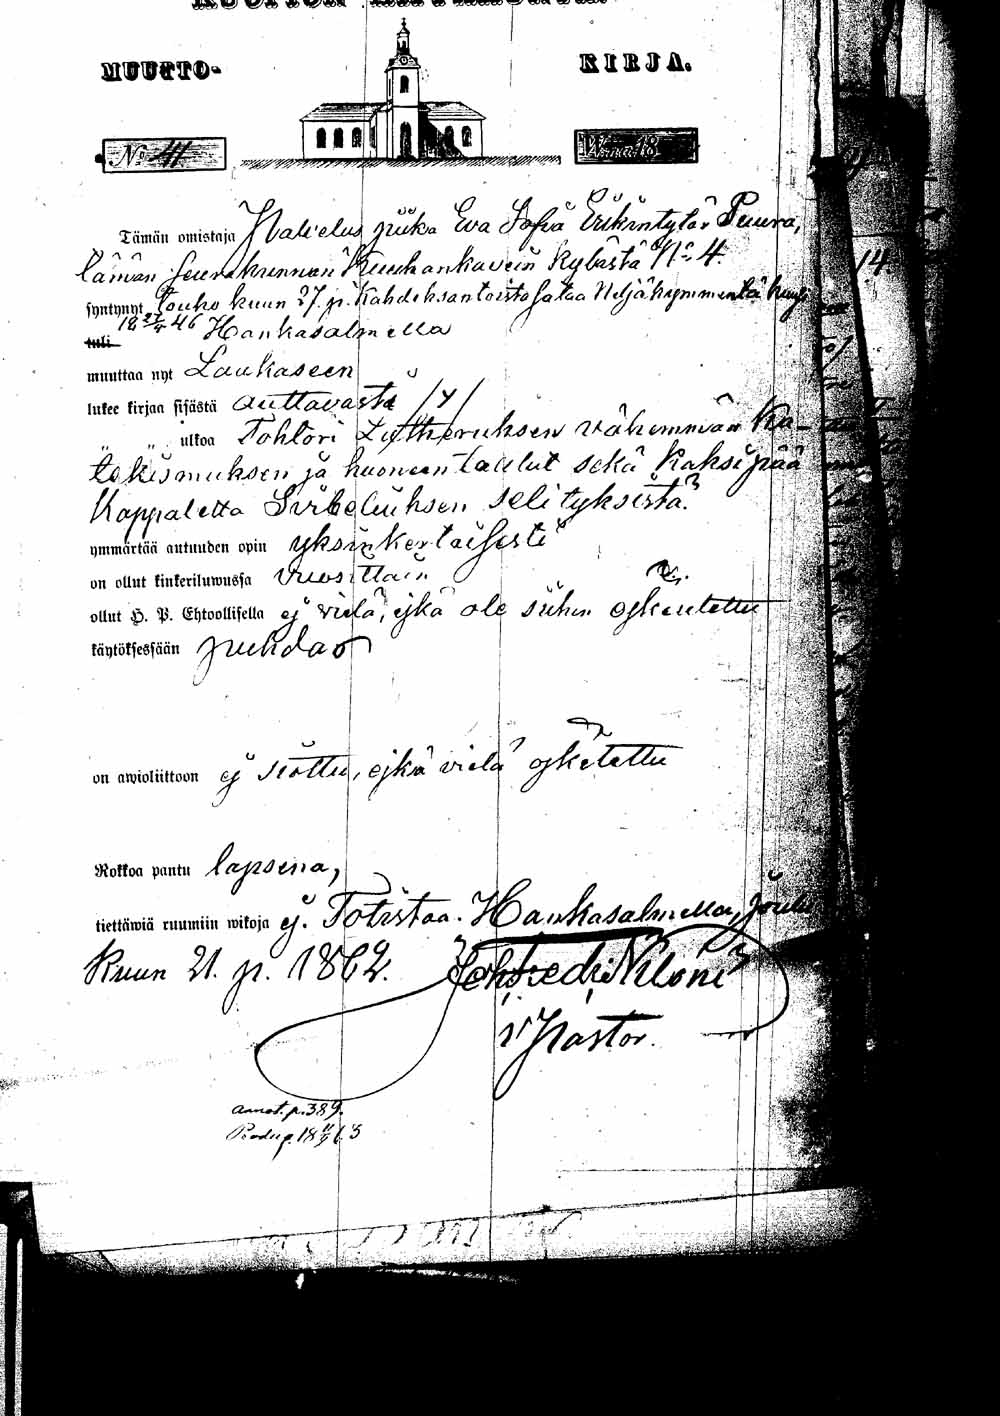 MUUTTO-
KIRJA.
No 41
Wnna 18
Tämän omistaja Palvelus piika Eva Sofia Eriksintytär Puura,
tämän seurakunnan Kuuhankaveen kylästä No 4.
syntynyt Touko kuun 27. p. Kahdeksantoistasataa Neljäkymmentä kuusi
18 27/5 46 Hankasalmella
tuli
muuttaa nyt Laukaseen
lukee kirjaa sisästä auttavasti /y/
" " ulkoa Tohtori Lutheruksen vähemmän Ka-
tekismuksen ja huoneentaulut sekä kaksi pää
Kappaletta Svibeliuksen selityksistä.
ymmärtää autuuden opin yksinkertaisesti
on ollut kinkeriluwussa vuosittain
ollut H. P. Ehtoollisella ej vielä, ejkä ole siihen ojkeutettu
käytöksessään puhdas
on awioliittoon ej siottu, ejkä vielä ojkeutettu
Rokkoa pantu lapsena,
tiettäwiä ruumiin wikoja ej. Totistaa. Hankasalmella, joulu
kuun 21. p. 1862.
v. Pastor.
annot. p. 389.
14.